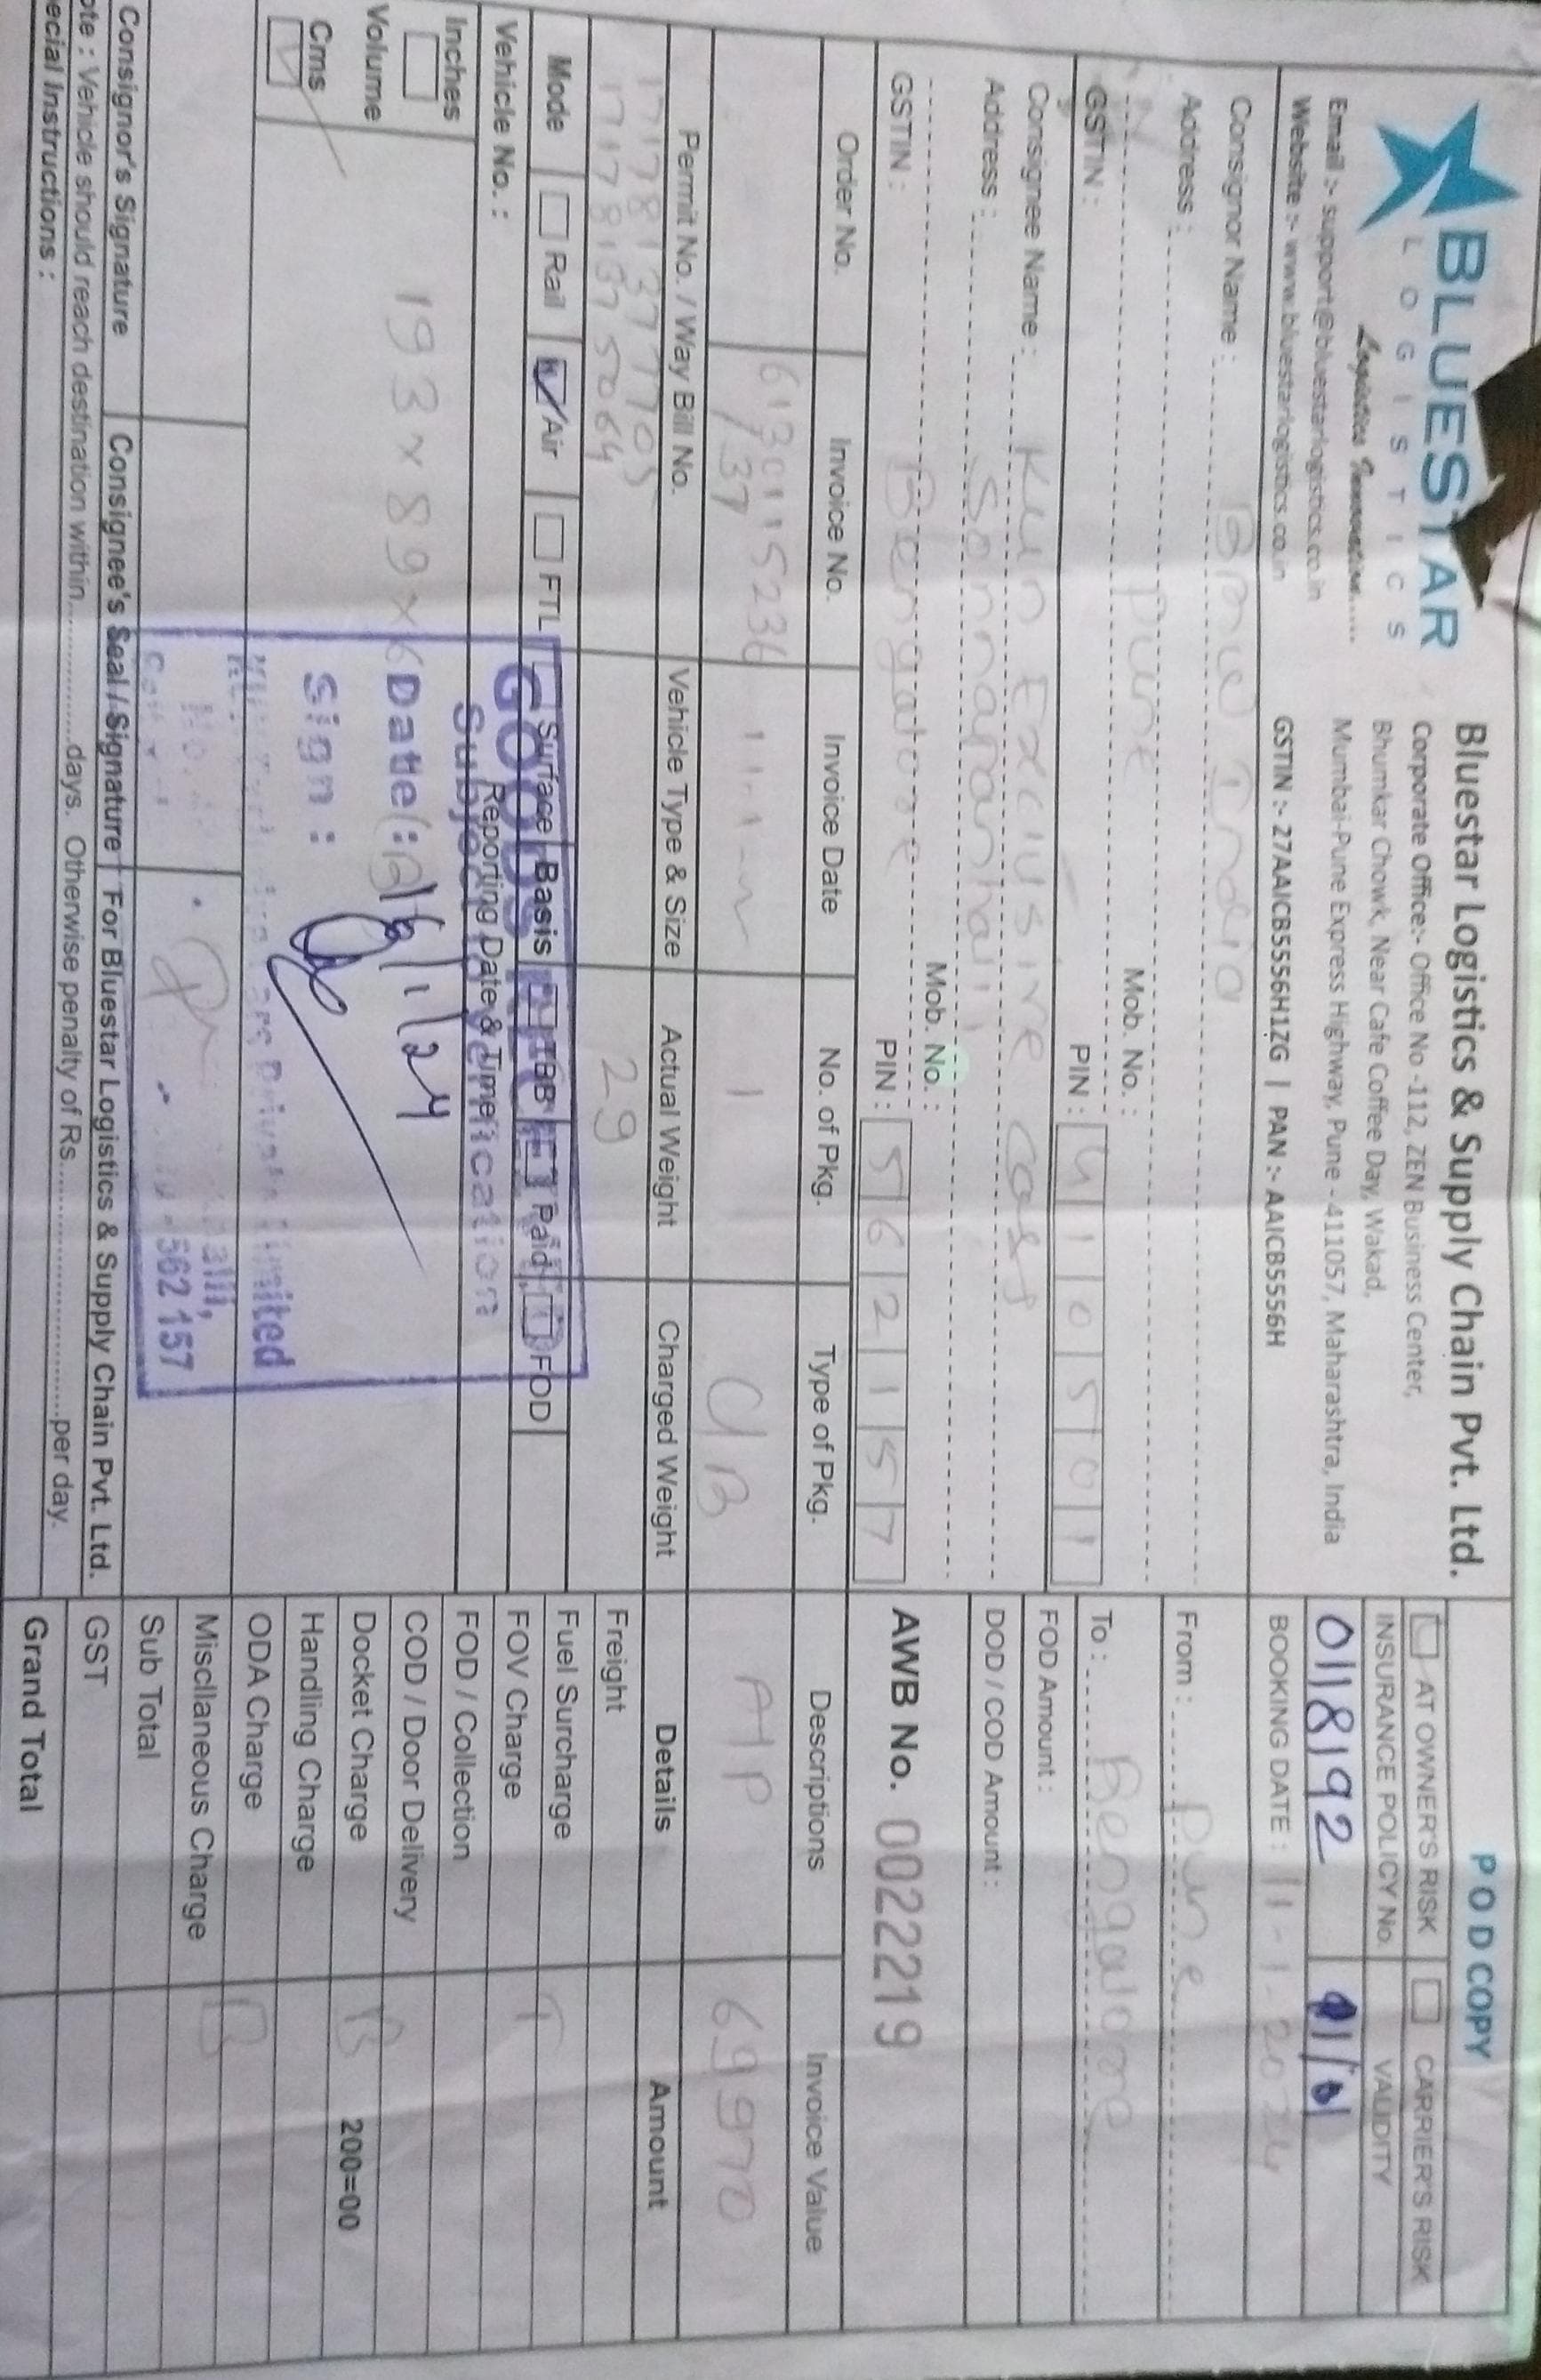 BLUESTAR
LOGISTICS
Logistics Innovation.....
Email :- support@bluestarlogistics.co.in
Website :- www.bluestarlogistics.co.in
Bluestar Logistics & Supply Chain Pvt. Ltd.
Corporate Office:- Office No -112, ZEN Business Center,
Bhumkar Chowk, Near Cafe Coffee Day, Wakad,
Mumbai-Pune Express Highway, Pune - 411057, Maharashtra, India
GSTIN :- 27AAICB5556H1ZG | PAN :- AAICB5556H
P O D COPY
AT OWNER'S RISK CARRIER'S RISK
INSURANCE POLICY No. VALIDITY
0118192
BOOKING DATE : 11-1-2024
Consignor Name : BMW India
Address :
Pune Mob. No. :
GSTIN : PIN : 410501
From : Pune
To : Bengalore
Consignee Name : Kun Exclusive cars
Address : Sonnapanhalli,
Mob. No. :
Bengalore
GSTIN : PIN : 562157
FOD Amount :
DOD / COD Amount :
AWB No. 0022219
Order No. Invoice No. Invoice Date No. of Pkg. Type of Pkg. Descriptions Invoice Value
6130115236 1 C/B A/P 69970
/37
Permit No. / Way Bill No. Vehicle Type & Size Actual Weight Charged Weight Details Amount
171781377705 29
171781375064
Mode Rail Air FTL Surface Basis TBB Paid FOD
Vehicle No. : Reporting Date & Time :
Inches
Volume
Cms
193 × 89 × 6
GOODS RECEIVED
Subject to Verification
Date : 16/1/24
Sign :
KUN Exclusive Cars Private Limited
No.
alli,
- 562 157
Freight
Fuel Surcharge
FOV Charge T
FOD / Collection
COD / Door Delivery
Docket Charge B 200=00
Handling Charge
ODA Charge B
Miscllaneous Charge
Sub Total
GST
Grand Total
Consignor's Signature Consignee's Seal / Signature For Bluestar Logistics & Supply Chain Pvt. Ltd.
ote : Vehicle should reach destination within................days. Otherwise penalty of Rs............................per day.
ecial Instructions :